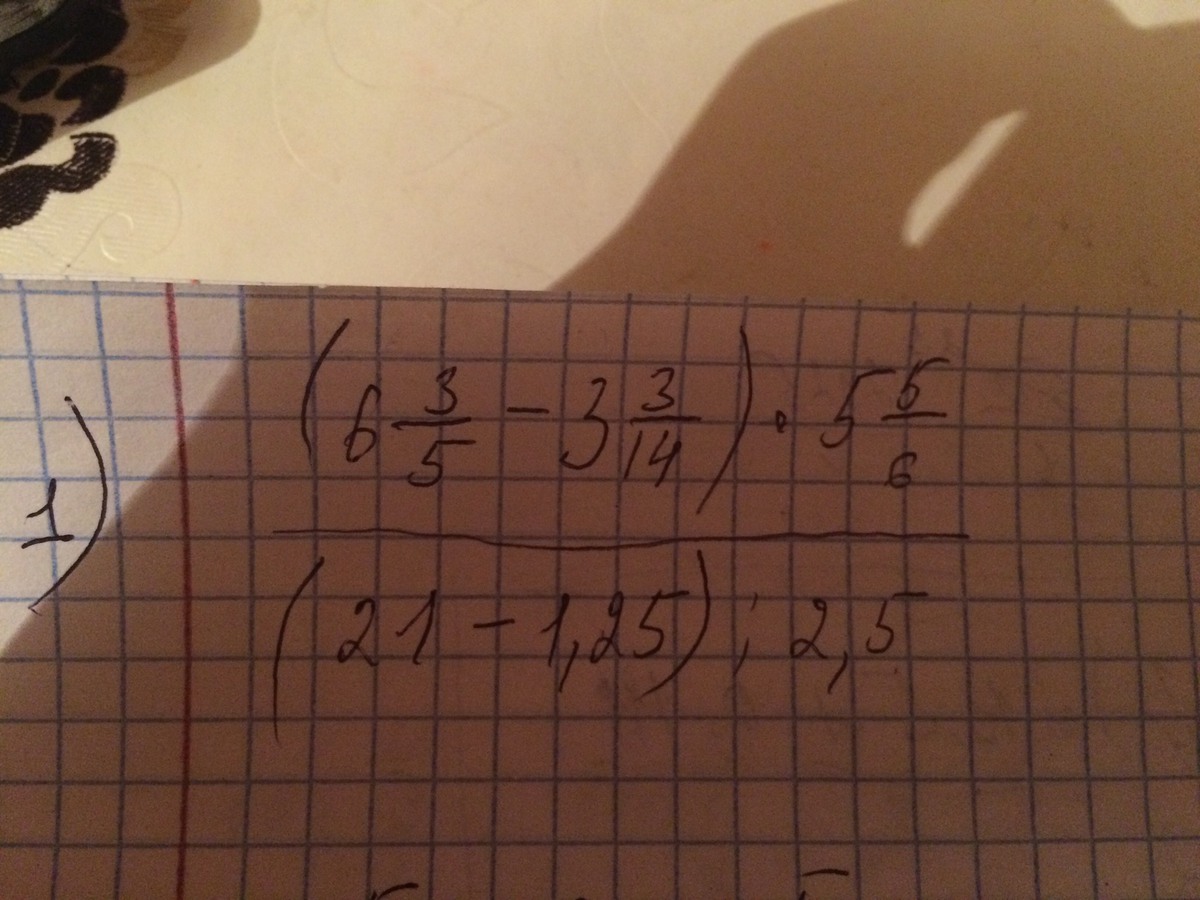 1) (6 3/5 − 3 3/14) · 5 5/6
(21 − 1,25) : 2,5